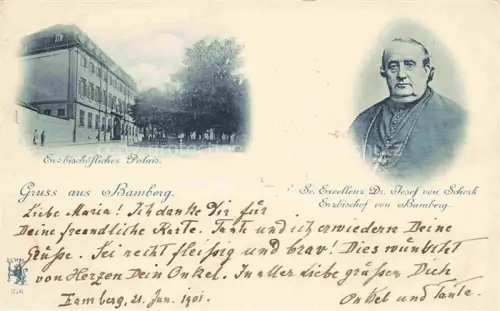 Erzbischöfliches Palais.
Gruss aus Bamberg.
Se. Excellenz Dr. Josef von Schork
Erzbischof von Bamberg.
Liebe Maria! Ich danke Dir für
Deine freundliche Karte. Tante und ich erwiedern Deine
Grüße. Sei recht fleißig und brav! Dies wünscht
von Herzen Dein Onkel. In aller Liebe grüßen Dich
Bamberg, 21. Jun. 1901.
Onkel und Tante.